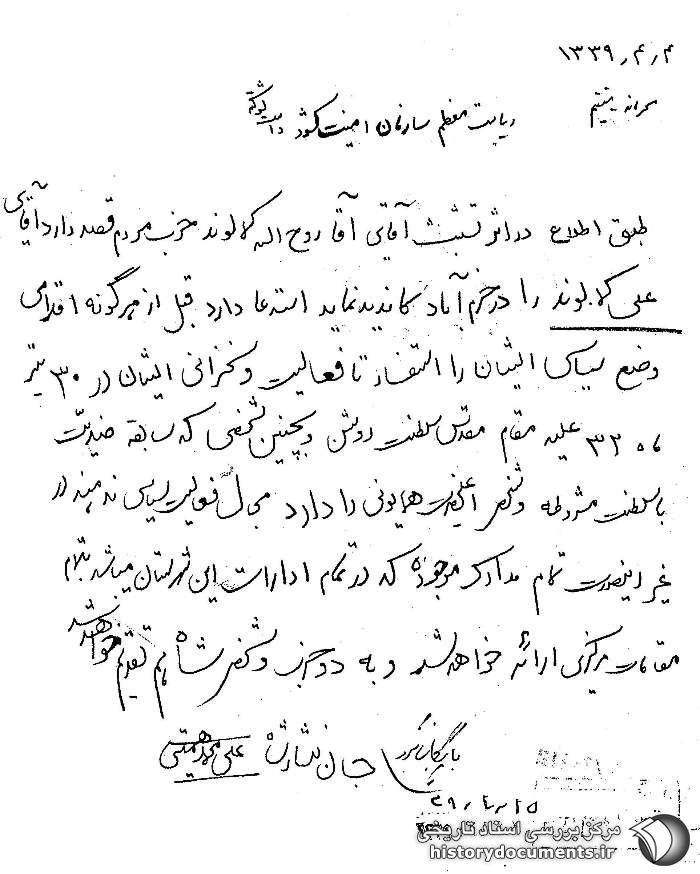 ۱۳۳۹٫۴٫۴
محرمانه مستقیم
ریاست معظم سازمان امنیت کشور دامت شوکته
طبق اطلاع در اثر تشبث آقای آقا روح اله کلالوند حزب مردم قصد دارد آقای
علی کلالوند را در خرم آباد کاندید نماید استدعا دارد قبل از هرگونه اقدامی
وضع سیاسی ایشان را استفسار تا فعالیت و سخنرانی ایشان در ۳۰ تیر
۱۳۳۱ علیه مقام مقدس سلطنت روشن و بچنین شخصی که سابقه ضدیت
با سلطنت مشروطه و شخص اعلیحضرت همایونی را دارد مجال فعالیت سیاسی ندهند در
غیر اینصورت تمام مدارک موجوده که در تمام ادارات این شهرستان میباشد بتمام
مقامات مرکزی ارائه خواهد شد و به دو حزب و شخص شاه هم تقدیم خواهد شد
جان نثار شاه علی محمد همتی
بایگانی گردد
۳۹٫۴٫۱۵
مرکز بررسی اسناد تاریخی
historydocuments.ir